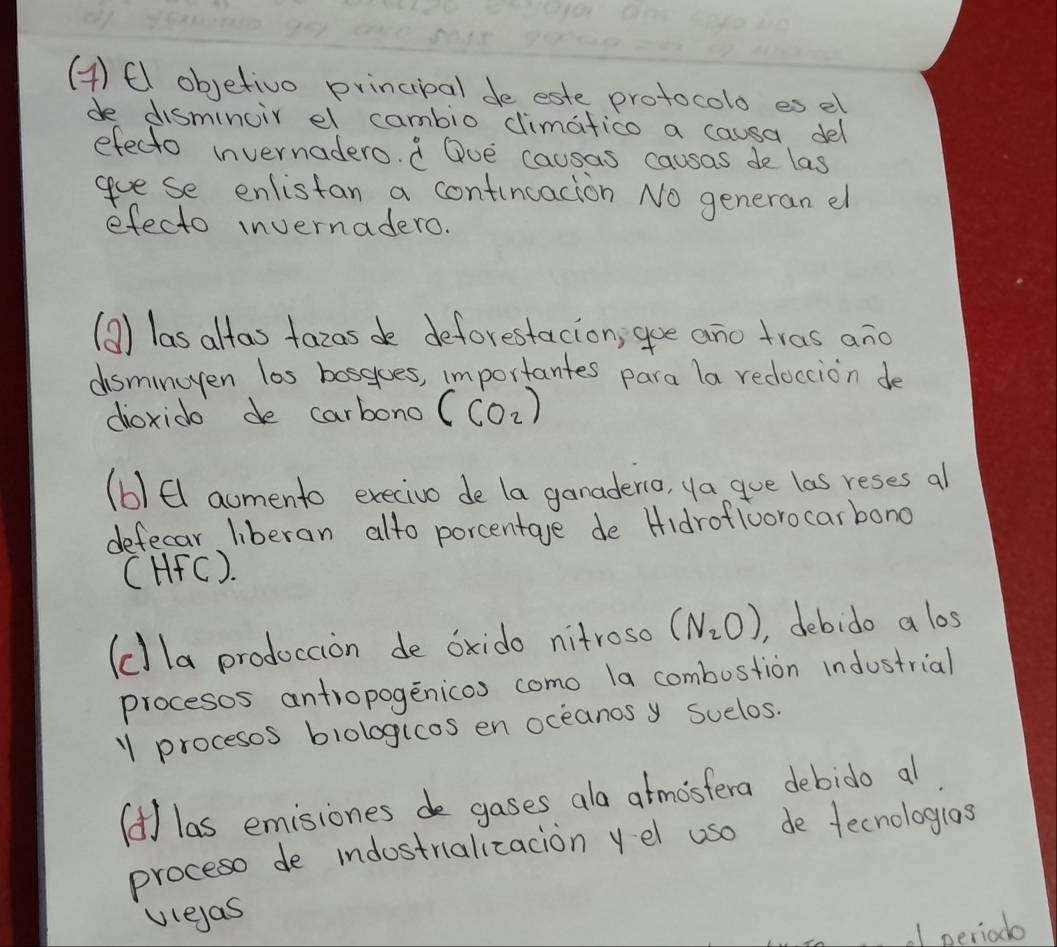 (1) El objetivo principal de este protocolo es el
de disminuir el cambio climático a causa del
efecto invernadero. ¿ Qué causas causas de las
que se enlistan a continuación NO generan el
efecto invernadero.
(a) las altas tazas de deforestación, que año tras año
disminuyen los bosques, importantes para la reducción de
dioxido de carbono (CO₂)
(b) El aumento execivo de la ganadería, ya que las reses al
defecar liberan alto porcentaje de Hidrofluorocarbono
(HFC).
(c) la producción de óxido nitroso (N₂O), debido a los
procesos antropogénicos como la combustión industrial
y procesos biologicos en océanos y suelos.
(d) las emisiones de gases ala atmósfera debido al
proceso de industrialización y el uso de tecnologías
viejas
periodo